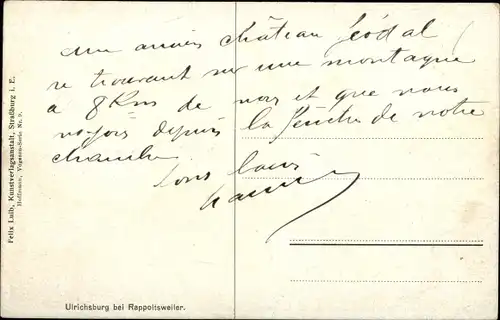 Un ancien château féodal
se trouvant sur une montagne
à 8 Kms de nous et que nous
voyons depuis la fenêtre de notre
chambre.
Felix Luib, Kunstverlagsanstalt, Straßburg i. E.
Hoffmann, Vogesen-Serie No. 9.
Ulrichsburg bei Rappoltsweiler.